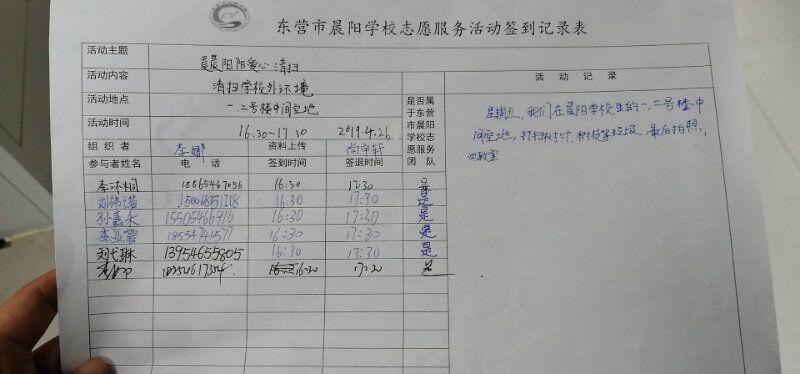 东营市晨阳学校志愿服务活动签到记录表
活动主题 晨晨阳阳爱心清扫
活动内容 清扫学校外环境
活动地点 一、二号楼中间空地
活动时间 16:30-17:30 2019.4.26
是否属于东营市晨阳学校志愿服务团队
活动记录
星期五,我们在晨阳学校里的一,二号楼中
间空地,打扫树叶,树枝等垃圾,最后拍照,
回教室
组织者 李娜 资料上传 尚宇轩
参与者姓名 电话 签到时间 签退时间
16:30 17:30 是
15006851718 16:30 17:30 是
孙嘉禾 15505466916 16:30 17:30 是
18554741577 16:30 17:30 是
刘弋琳 13954655805 16:30 17:30 是
16:30 17:30 是